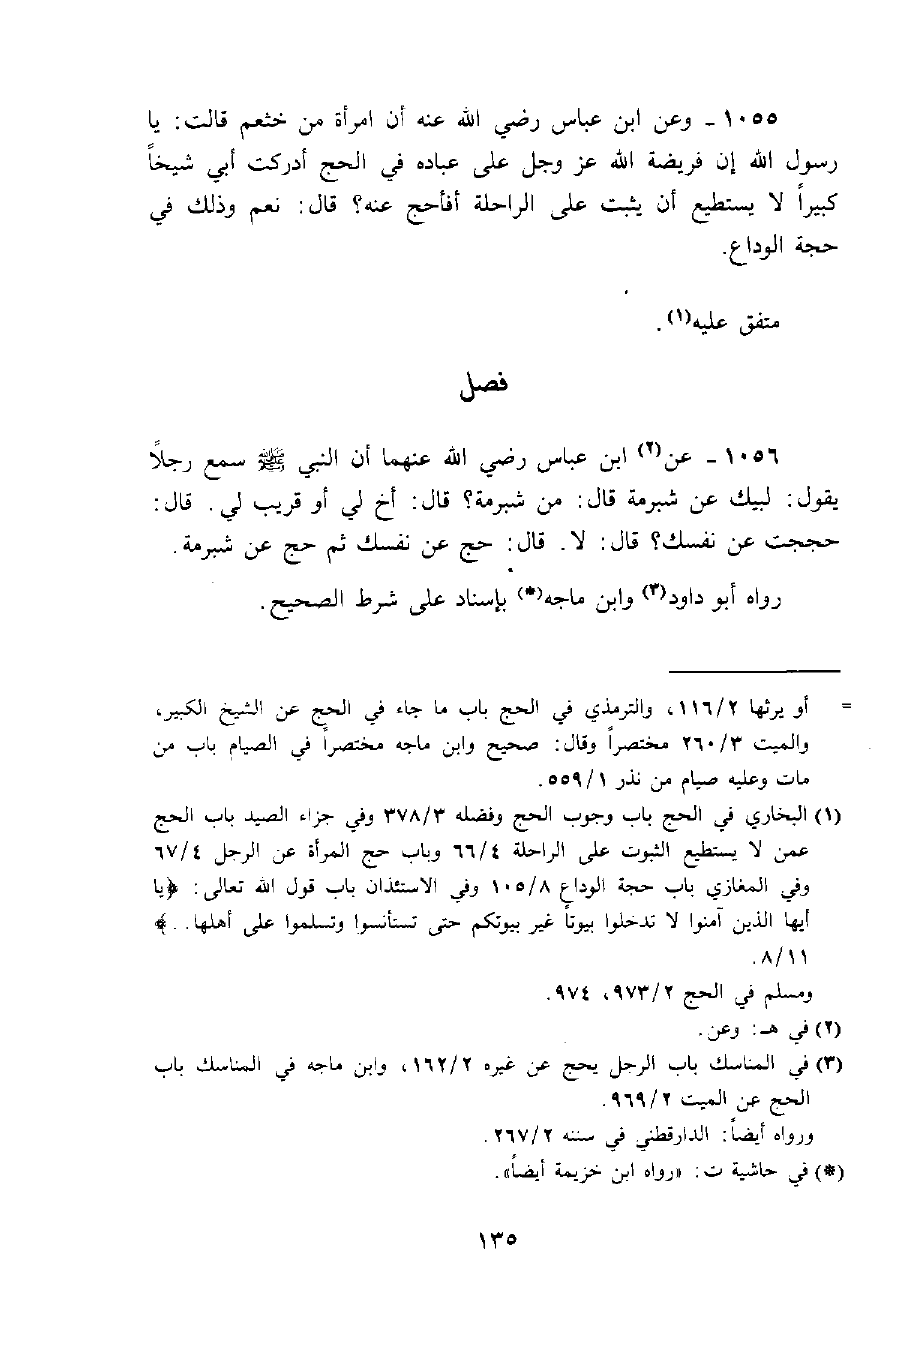 ١٠٥٥ ـ وعن ابن عباس رضي الله عنه أن امرأة من خثعم قالت: يا
رسول الله إن فريضة الله عز وجل على عباده في الحج أدركت أبي شيخاً
كبيراً لا يستطيع أن يثبت على الراحلة أفأحج عنه؟ قال: نعم وذلك في
حجة الوداع.
متفق عليه(١).
فصل
١٠٥٦ ـ عن(٢) ابن عباس رضي الله عنهما أن النبي ﷺ سمع رجلاً
يقول: لبيك عن شبرمة قال: من شبرمة؟ قال: أخ لي أو قريب لي. قال:
حججت عن نفسك؟ قال: لا. قال: حج عن نفسك ثم حج عن شبرمة.
رواه أبو داود(٣) وابن ماجه(*) بإسناد على شرط الصحيح.
= أو يرثها ١١٦/٢، والترمذي في الحج باب ما جاء في الحج عن الشيخ الكبير،
والميت ٢٦٠/٣ مختصراً وقال: صحيح وابن ماجه مختصراً في الصيام باب من
مات وعليه صيام من نذر ٥٥٩/١.
(١) البخاري في الحج باب وجوب الحج وفضله ٣٧٨/٣ وفي جزاء الصيد باب الحج
عمن لا يستطيع الثبوت على الراحلة ٦٦/٤ وباب حج المرأة عن الرجل ٦٧/٤
وفي المغازي باب حجة الوداع ١٠٥/٨ وفي الاستئذان باب قول الله تعالى: ﴿يا
أيها الذين آمنوا لا تدخلوا بيوتاً غير بيوتكم حتى تستأنسوا وتسلموا على أهلها..﴾
٨/١١.
ومسلم في الحج ٩٧٣/٢، ٩٧٤.
(٢) في هـ: وعن.
(٣) في المناسك باب الرجل يحج عن غيره ١٦٢/٢، وابن ماجه في المناسك باب
الحج عن الميت ٩٦٩/٢.
ورواه أيضاً: الدارقطني في سننه ٢٦٧/٢.
(*) في حاشية ت: «رواه ابن خزيمة أيضاً».
١٣٥